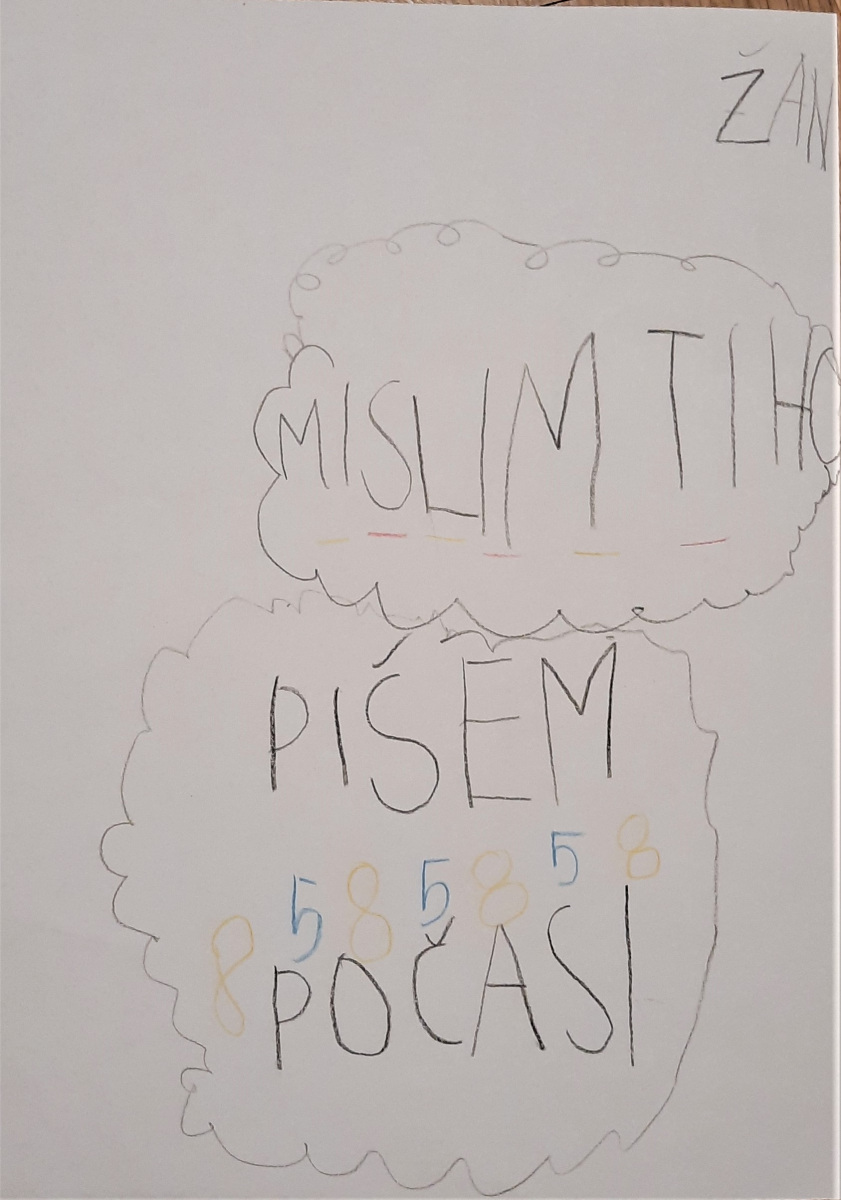 ŽAN
MISLIM TIHO
PIŠEM
8 5 8 5 8 5 8
POČASI